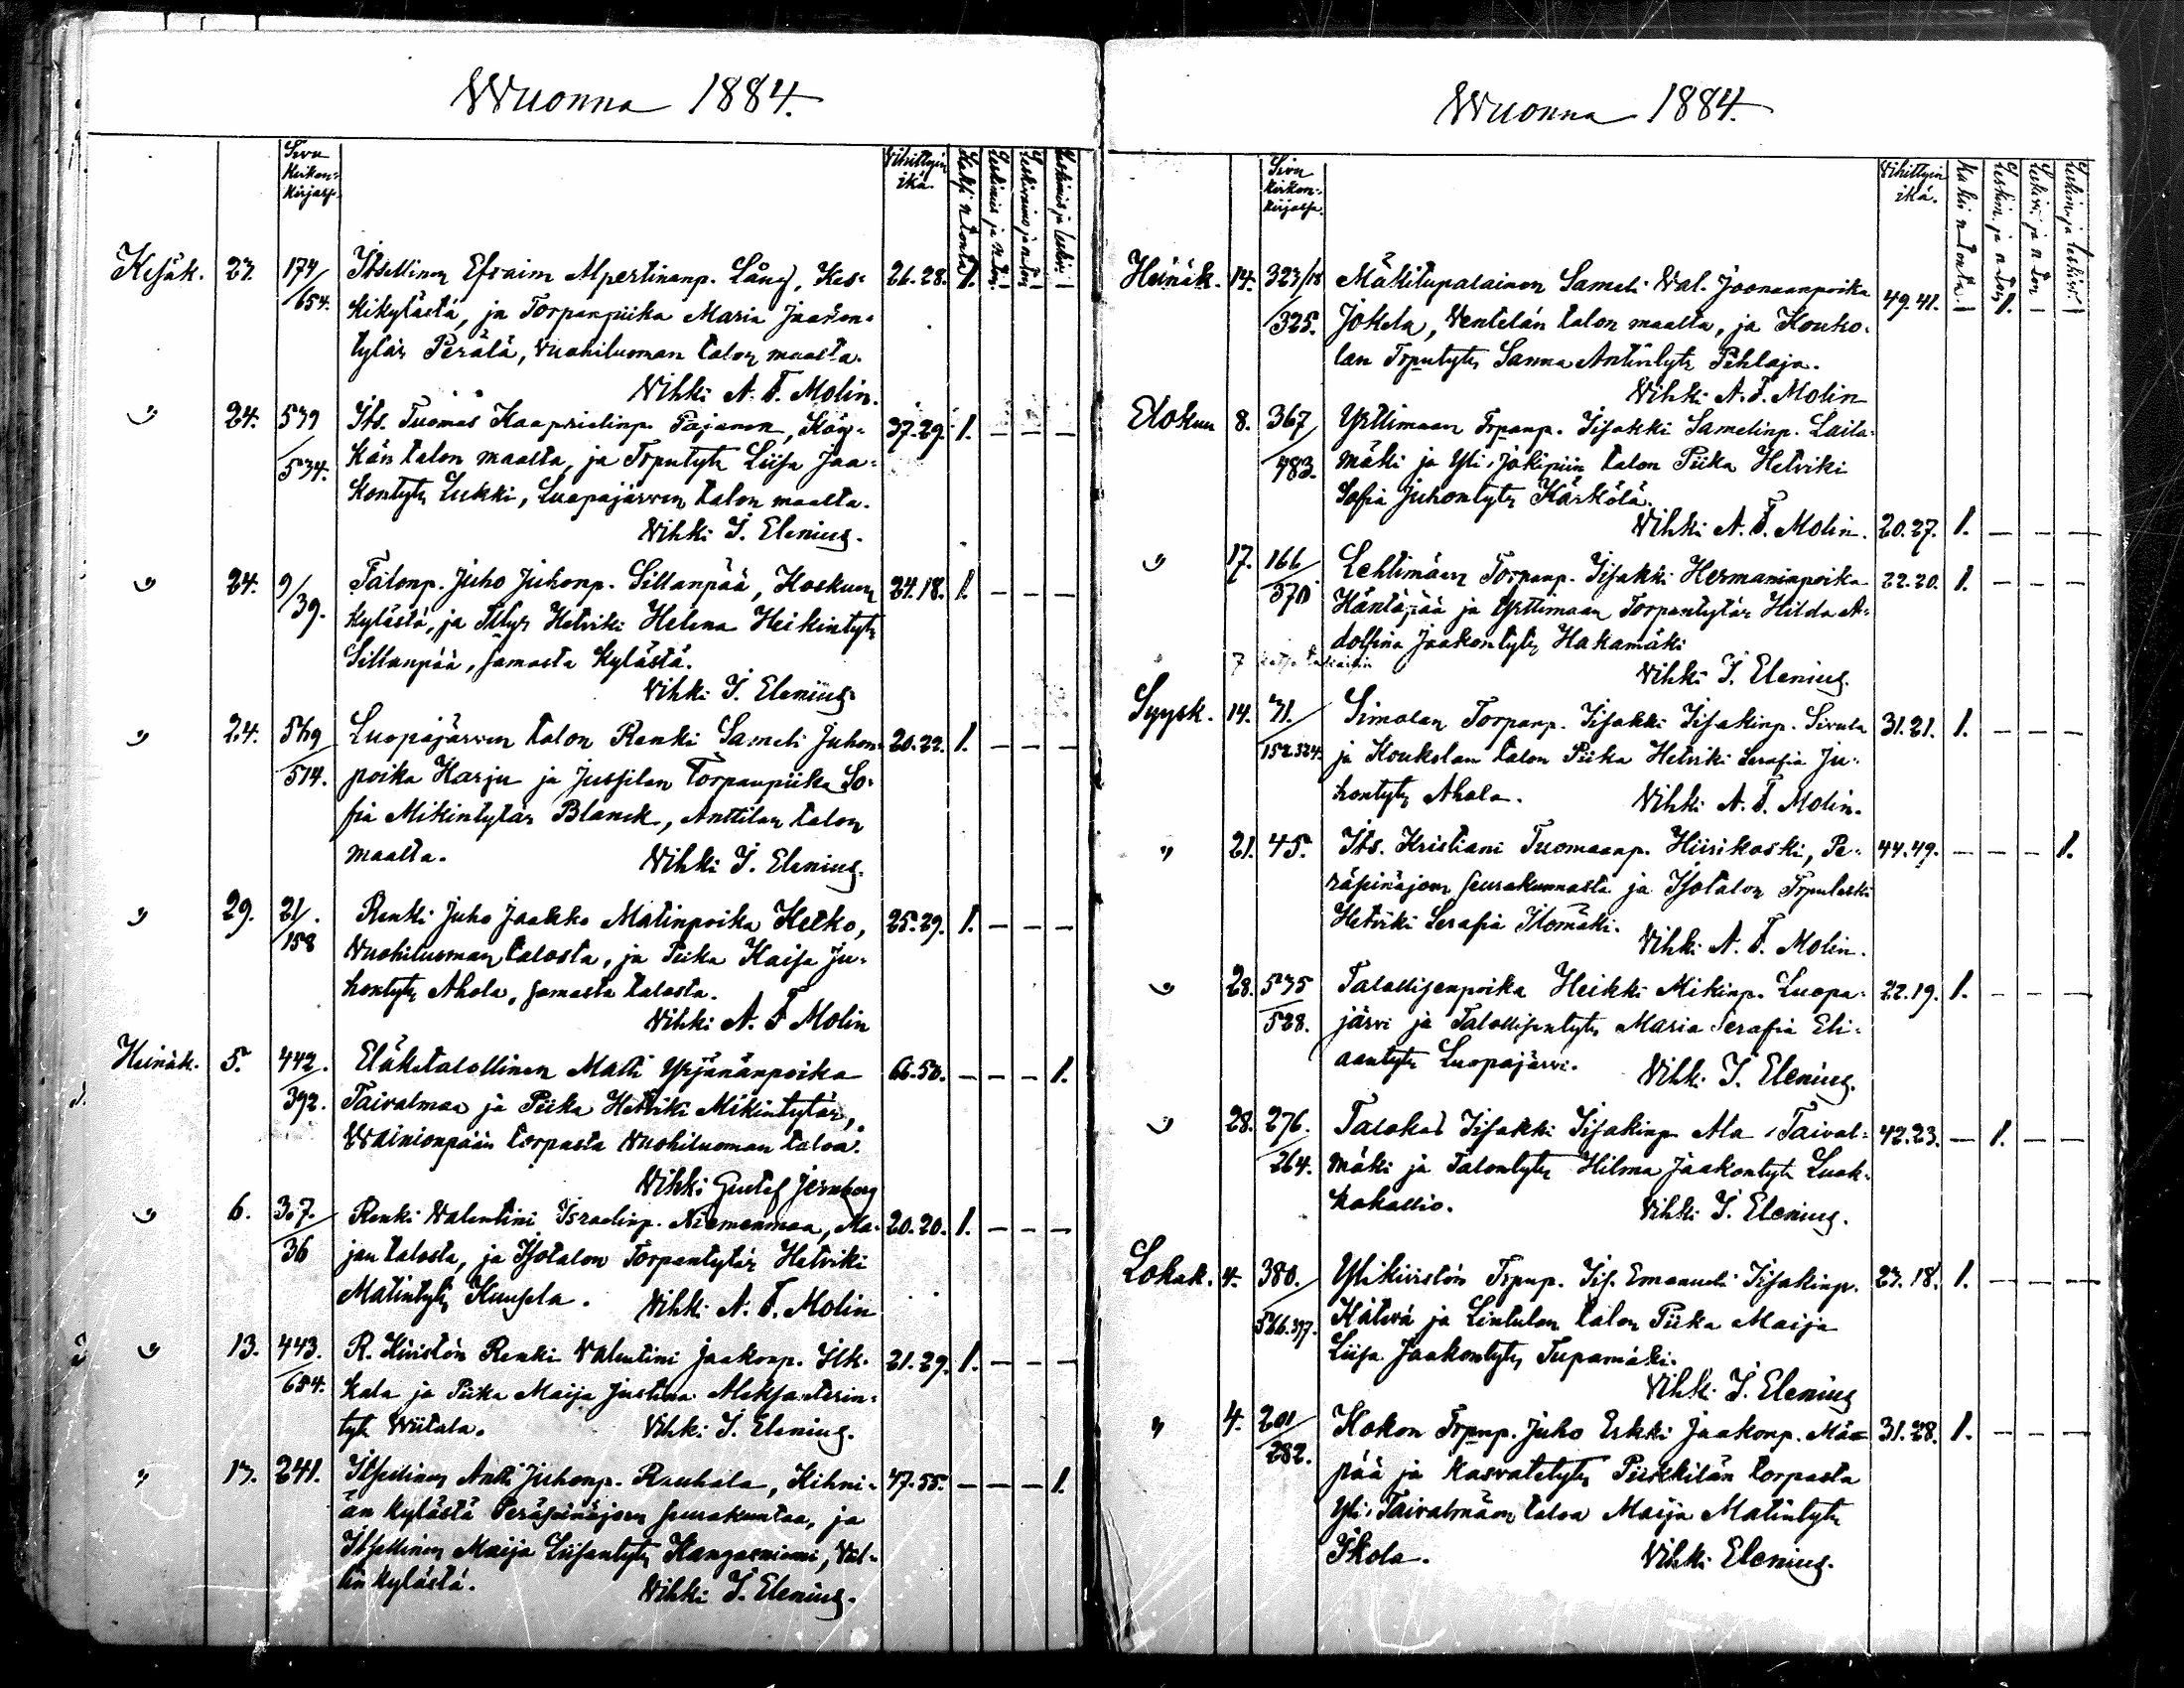 Wuonna 1884.
Sivu Kirkon-kirjassa.
Vihittyin ikä.
Kesäk. 23. 174/654. Itsellinen Efraim Alpertinanp. Lång, Kes- 26.28. 1.
kikylästä, ja Torpanpiika Maria Jaakon-
tytär Perälä, Vuohiluoman talon maalta.
Vihki A. F. Molin.
" 24. 539/534. Its. Tuomas Kaaprielinp. Pajanen, Köy- 37.29. 1. – – –
kän talon maalta, ja Trputytr Liisa Jaa-
kontytr Lukki, Luopajärven talon maalta.
Vihki I. Elenius.
" 24. 9/39. Talonp. Juho Juhonp. Sillanpää, Koskuen 24.18. 1. – – –
kylästä, ja Tltyr Hetviki Helena Heikintytr
Sillanpää, samasta kylästä.
Vihki I. Elenius.
" 24. 549/514. Luopajärven talon Renki Sameli Juhon- 20.22. 1. – – –
poika Harju ja Jussilan Torpanpiika So-
fia Mikintytär Blanck, Anttilan talon
maalta. Vihki I. Elenius.
" 29. 21/158 Renki Juho Jaakko Matinpoika Ketko, 25.29. 1. – – –
Vuohiluoman talosta, ja Piika Kaisa Ju-
hontytr Ahola, samasta talosta.
Vihki A. F Molin
Heinäk. 5. 442./392. Eläketalollinen Matti Yrjänänpoika 66.50. – – – 1.
Taivalmaa ja Piika Hetviki Mikintytär,
Wainionpään torpasta Vuohiluoman taloa.
Vihki Gustaf Jernberg
" 6. 307./36 Renki Valentini Israelinp. Niemenmaa, Ma- 20.20. 1. – – –
jan talosta, ja Isotalon Torpantytär Hetviki
Matintytr Kuusela. Vihki A. F. Molin
" 13. 443./654. R. Kiviston Renki Valentini Jaakonp. Ilk- 21.29. 1. – – –
kala ja Piika Maija Justina Aleksanterin-
tytr Wiitala. Vihki I. Elenius.
" 13. 241. Itsellinen Antti Juhonp. Rauhala, Kihni- 47.55. – – – 1.
än kylästä Peräseinäjoen seurakuntaa, ja
Itsellinen Maija Liisantytr Kangasniemi, Väl-
lin kylästä. Vihki I. Elenius.
Wuonna 1884.
Sivu Kirkon-kirjassa.
Vihittyin ikä.
Heinäk. 14. 323/18/325. Mäkitupalainen Sameli Wal. Joonaanpoika 49.41. – 1. – –
Jokela, Ventelän talon maalta, ja Kouko-
lan Trputytr Sanna Antintytr Pihlaja.
Vihki A. F. Molin
Elokuu 8. 367/483. Yrttimaan Trpanp. Iisakki Samelinp. Laila-
mäki ja Yli-Jokipiin talon Piika Hetviki
Sofia Juhontytr Kärkölä.
Vihki A. F. Molin. 20.27. 1. – – –
" 17. 166/570 Lehtimäen Torpanp. Iisakki Hermaninpoika 22.20. 1. – – –
Häntäpää ja Yrttimaan Torpantytär Hilda A-
dolfina Jaakontytr Hakamäki
Vihki I. Elenius.
Syysk. 14. 71./152.324. Simolan Torpanp. Iisakki Iisakinp. Sivula 31.21. 1. – – –
ja Koukolan talon Piika Hetviki Serafia Ju-
hontytr Ahola. Vihki A. F. Molin.
" 21. 45. Its. Kristiani Tuomaanp. Hiirikoski, Pe- 44.49. – – – 1.
räseinäjoen seurakunnasta ja Isotalon Trpuleski
Hetviki Serafia Ilomäki.
Vihki A. F. Molin.
" 28. 535/528. Talollisenpoika Heikki Mikinp. Luopa- 22.19. 1. – – –
järvi ja Talollisentytr Maria Serafia Eli-
aantytr Luopajärvi. Vihki I. Elenius.
" 28. 276./264. Talokas Iisakki Iisakinp. Ala-Taival- 42.23. – 1. – –
mäki ja Talontytr Hilma Jaakontytr Luok-
kakallio. Vihki I. Elenius.
Lokak. 4. 380./566.397. Ylikiviston Trpup. Iis. Emanueli Iisakinp. 23.18. 1. – – –
Kätevä ja Lintulan talon Piika Maija
Liisa Jaakontytr Tupamäki.
Vihki I. Elenius
" 4. 201/282. Kokon Trpup. Juho Erkki Jaakonp. Mäen- 31.28. 1. – – –
pää ja Kasvatetytr Piikkilän torpasta
Yli-Taivalmäen taloa Maija Matintytr
Ikola. Vihki Elenius.